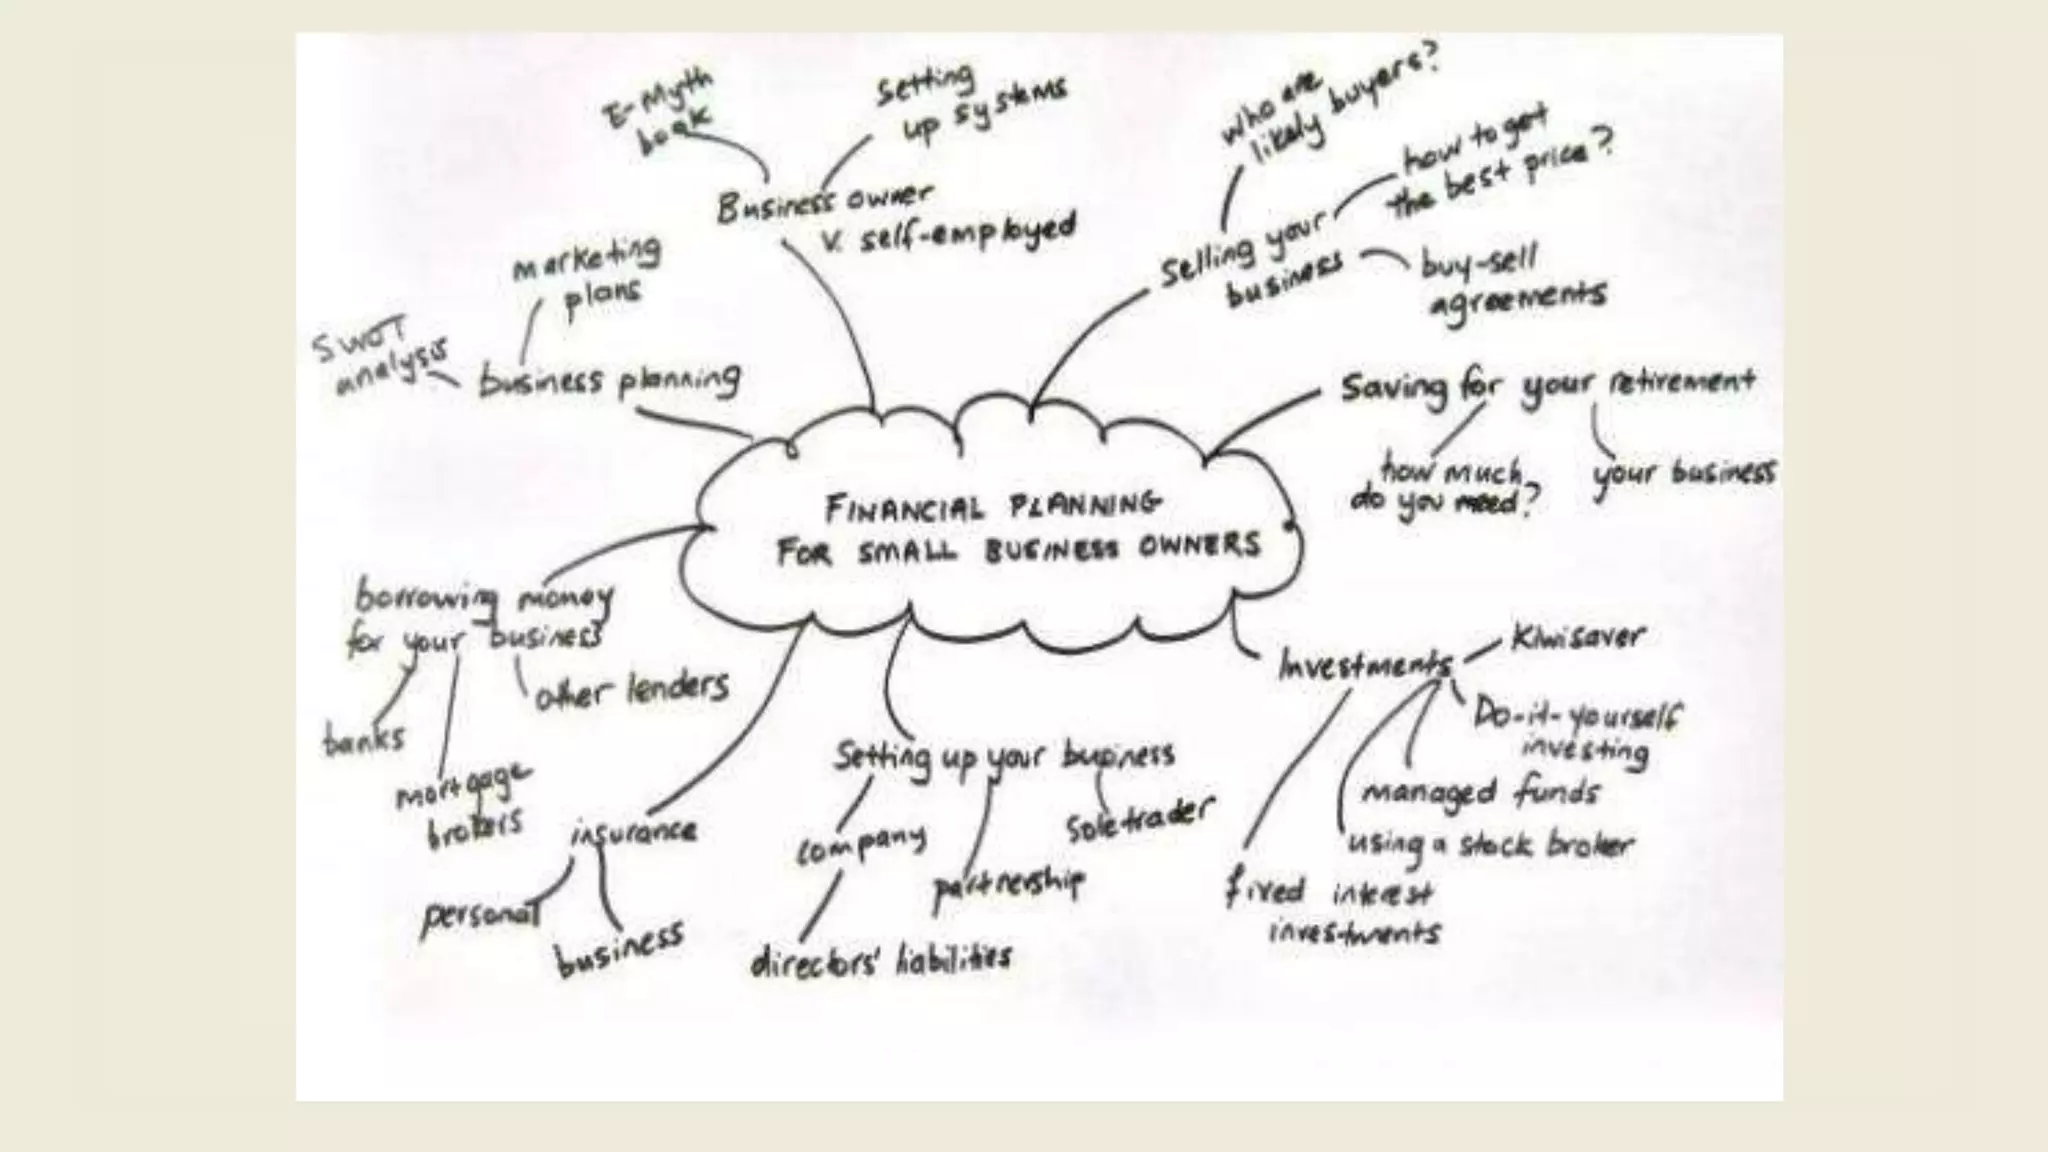 E-Myth
book
Setting
up systems
Business owner
v. self-employed
who are
likely buyers?
how to get
the best price?
Selling your
business
buy-sell
agreements
marketing
plans
SWOT
analysis
business planning
Saving for your retirement
how much
do you need?
your business
FINANCIAL PLANNING
FOR SMALL BUSINESS OWNERS
borrowing money
for your business
other lenders
banks
mortgage
brokers
insurance
personal
business
Setting up your business
company
sole trader
partnership
directors' liabilities
Investments
Kiwisaver
Do-it-yourself
investing
managed funds
using a stock broker
fixed interest
investments